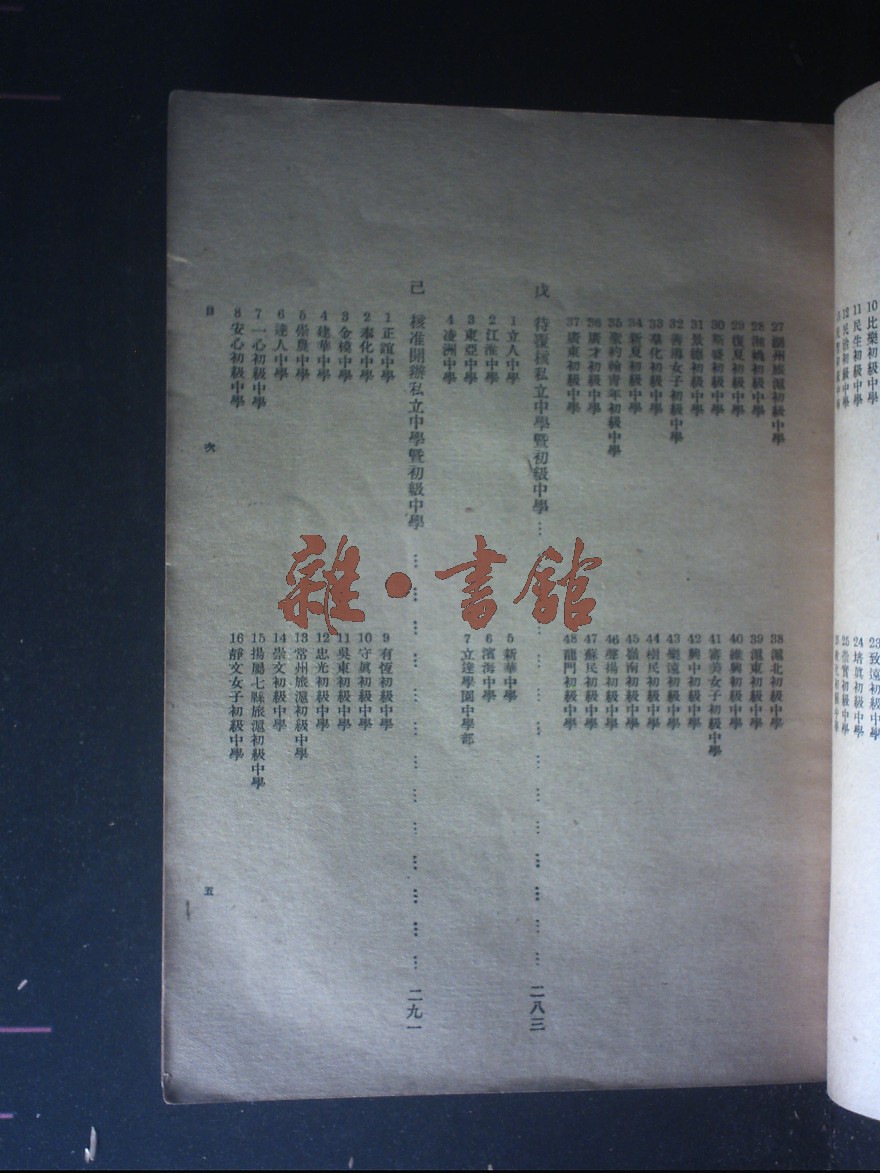 10比樂初級中學
11民生初級中學
12民治初級中學
23致遠初級中學
24培真初級中學
25崇實初級中學
27湖州旅滬初級中學
28洵嬌初級中學
29復夏初級中學
30斯盛初級中學
31景德初級中學
32善導女子初級中學
33羣化初級中學
34新夏初級中學
35聖約翰青年初級中學
36廣才初級中學
37廣東初級中學
38滬北初級中學
39滬東初級中學
40維興初級中學
41審美女子初級中學
42興中初級中學
43樂遠初級中學
44樹民初級中學
45嶺南初級中學
46聲揚初級中學
47蘇民初級中學
48龍門初級中學
戊 待覆核私立中學暨初級中學……二八三
1立人中學
2江淮中學
3東亞中學
4凌洲中學
5新華中學
6濱海中學
7立達學園中學部
己 核准開辦私立中學暨初級中學……二九一
1正誼中學
2奉化中學
3金陵中學
4建華中學
5崇農中學
6達人中學
7一心初級中學
8安心初級中學
9有恆初級中學
10守真初級中學
11吳東初級中學
12忠光初級中學
13常州旅滬初級中學
14崇文初級中學
15揚屬七縣旅滬初級中學
16靜文女子初級中學
目 次
五
雜·書館